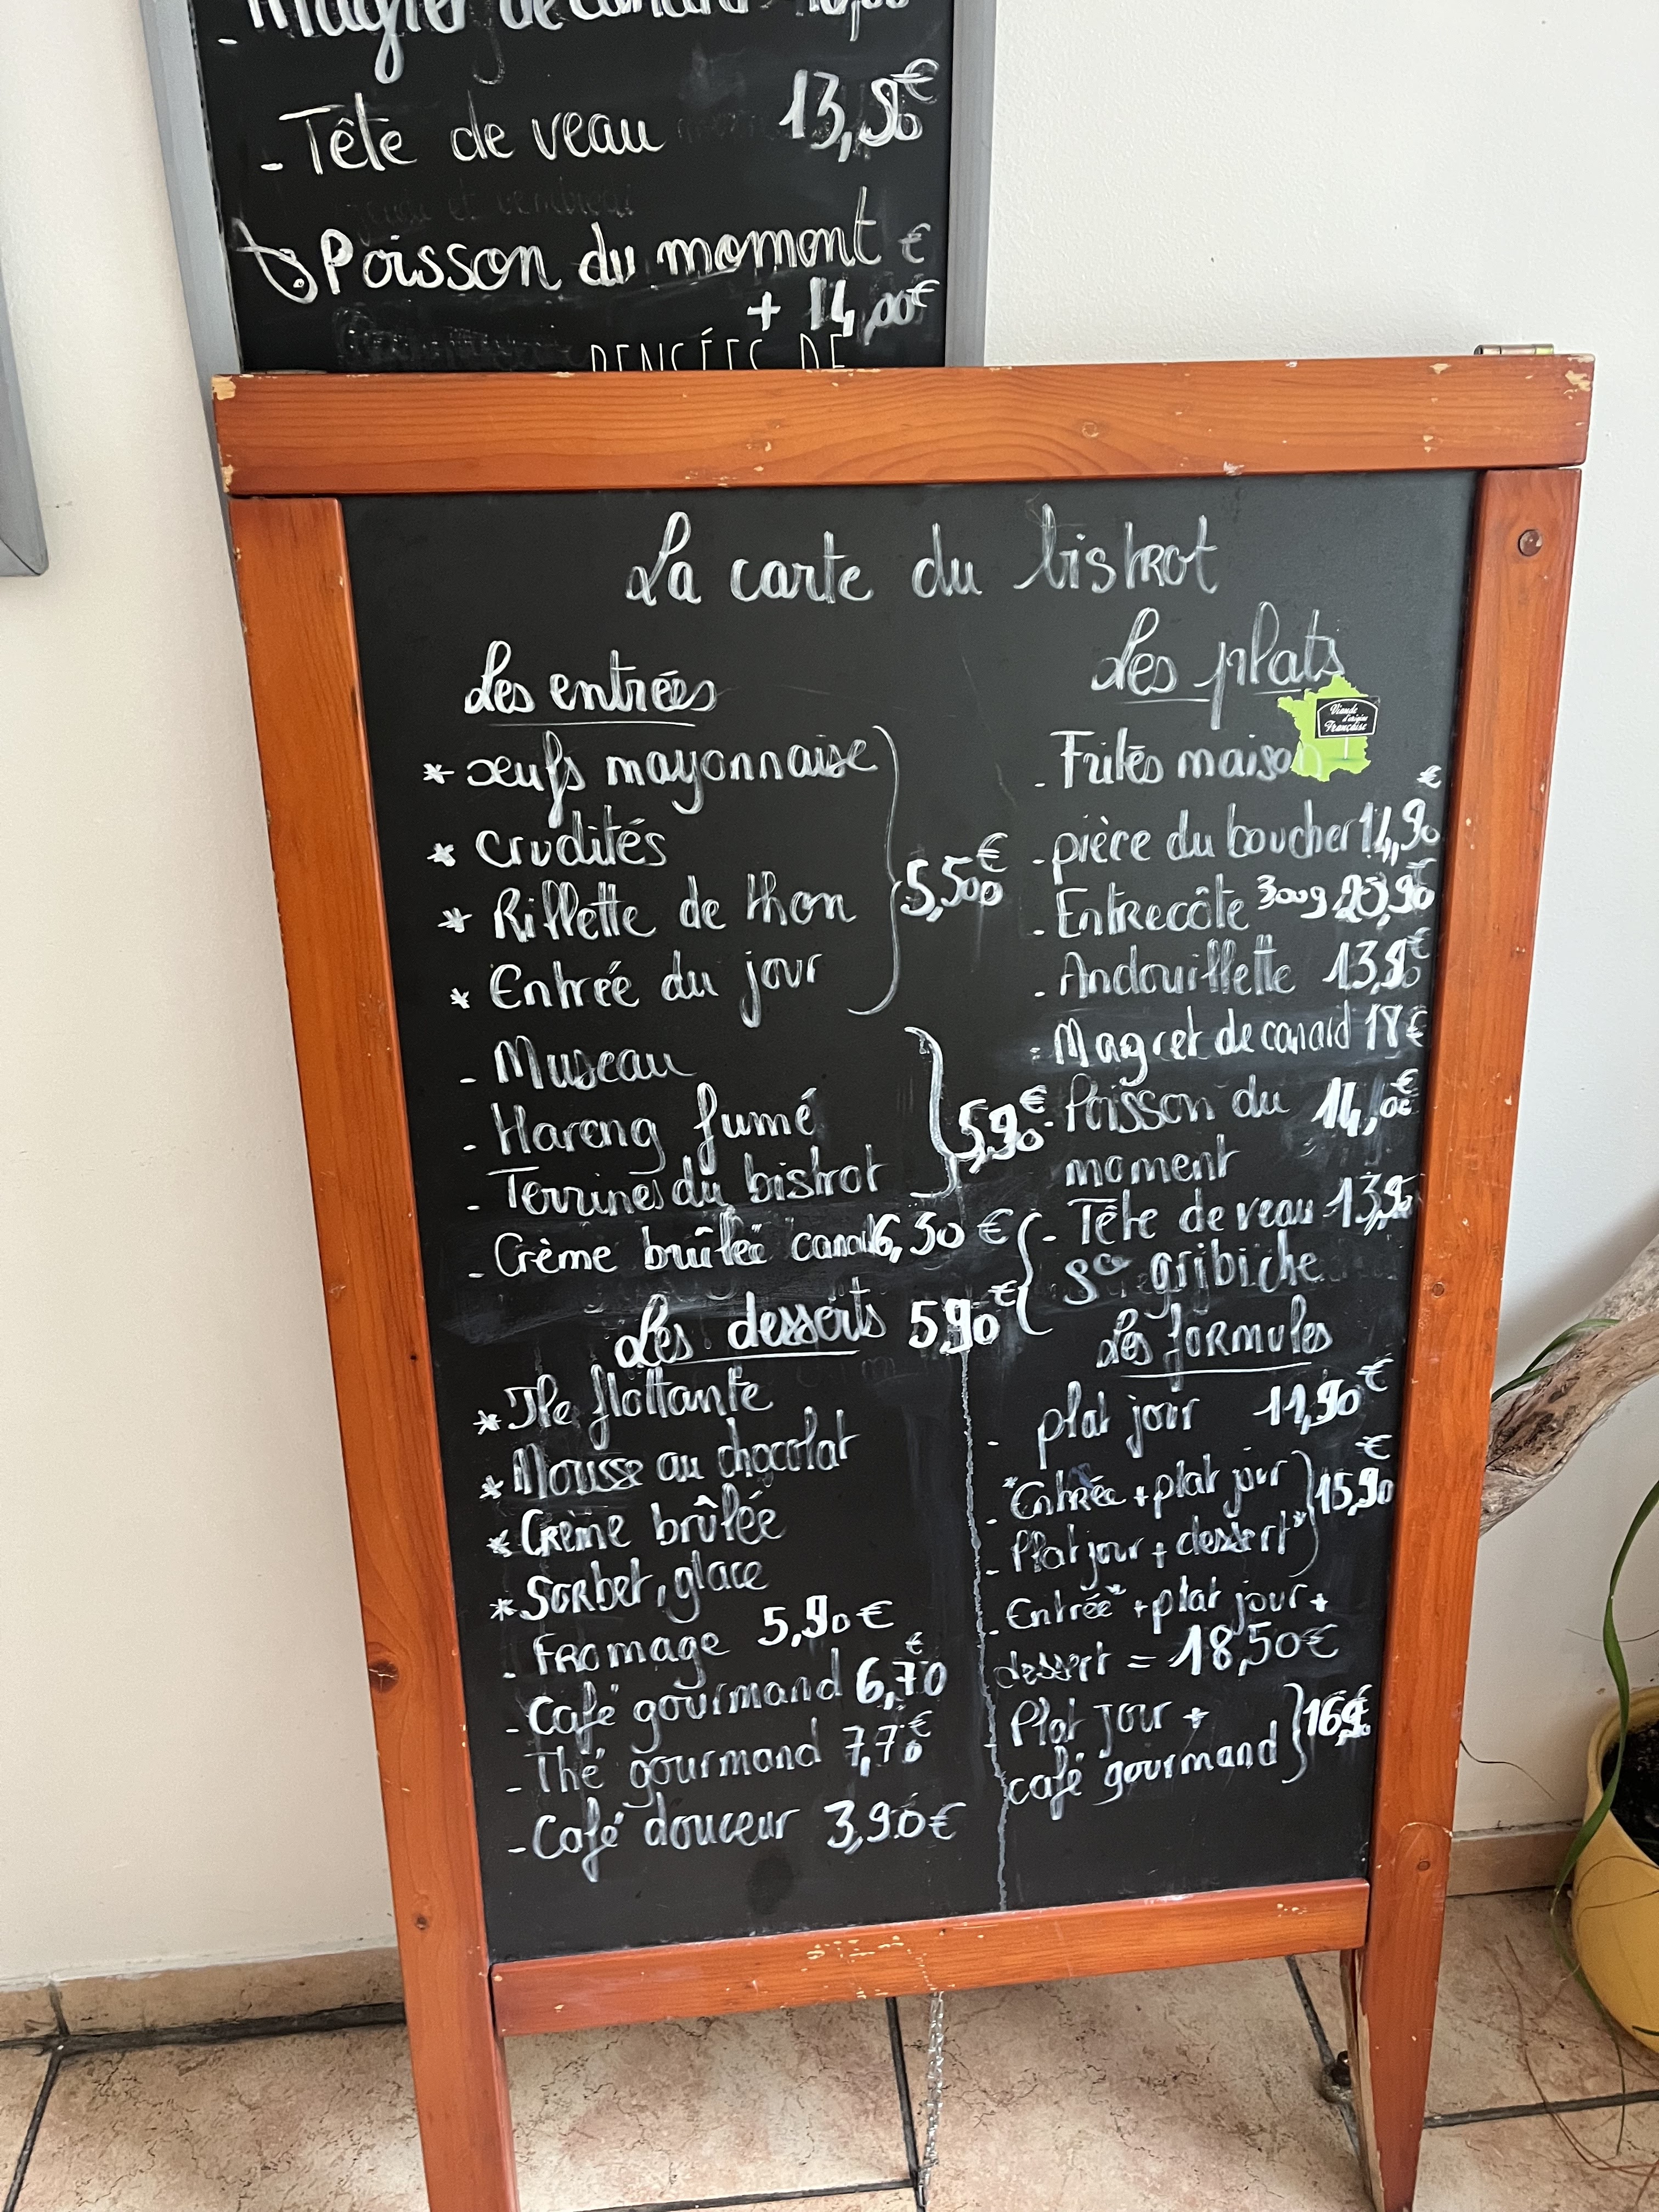 - Magret de canard
- Tête de veau 13,90€
Poisson du moment €
+ 14,00€
PENSÉES DE
La carte du bistrot
Les entrées
* œufs mayonnaise
* Crudités
* Rillette de thon
* Entrée du jour
5,50€
- Museau
- Hareng fumé
- Terrines du bistrot
5,90€
- Crème brûlée canard 6,50 €
Les desserts 5,90€
* Ile flottante
* Mousse au chocolat
* Crème brûlée
* Sorbet, glace
- Fromage 5,90€
- Café gourmand 6,70€
- Thé gourmand 7,70€
- Café douceur 3,90€
Les plats
Viande d'origine Française
- Frites maison
- pièce du boucher 14,90€
- Entrecôte 300g
- Andouillette 13,90€
- Magret de canard 18€
- Poisson du 14,00€
moment
- Tête de veau 13,90
sce gribiche
Les formules
- plat jour 11,90€
- *Entrée + plat jour
- Plat jour + dessert*
15,90€
- Entrée* + plat jour +
dessert = 18,50€
- Plat jour +
café gourmand